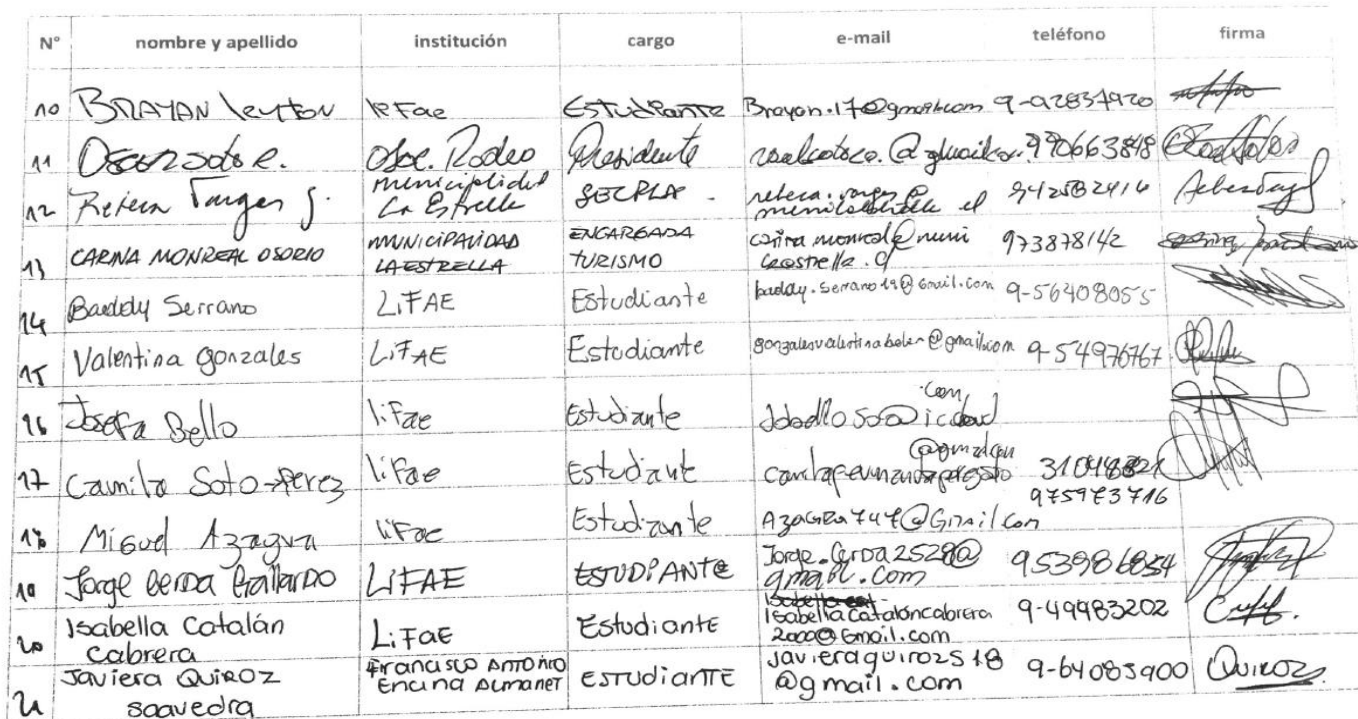 N° nombre y apellido institución cargo e-mail teléfono firma
10 BRAYAN leyton liFae EstudiantE Brayan.17@gmail.com 9-92837920
11 Oscar Soto R. Asoc. Rodeo Presidente 990663848
12 Vargas J. municiplidad La Estrella SECPLA - 942502416
13 CARINA MONREAL OSORIO MUNICIPALIDAD LA ESTRELLA ENCARGADA TURISMO carina.monreal@muni laestrella.cl 973878142
14 Badddy Serrano LiFAE Estudiante baddy.serrano19@Gmail.com 9-56408055
15 Valentina gonzales LiFAE Estudiante gonzalesvalentinabelen@gmail.com 9-54976767
16 Josefa Bello liFae Estudiante .com
17 Camila Soto Perez liFae Estudiante @gmail.com 31048821
18 Miguel Azagua liFae Estudiante Azagua747@Gmail.com 975973716
19 Jorge Cerda Gallardo LiFAE ESTUDIANTE Jorge.Cerda2528@ gmail.com 953986854
20 Isabella Catalán Cabrera LiFaE Estudiante Isabellacataláncabrera 2000@Gmail.com 9-49983202
21 Javiera QuiROZ saavedra Francisco Antonio Encina Armanet estudianTE javieraquirozs18 @gmail.com 9-64085900 QuiROZ